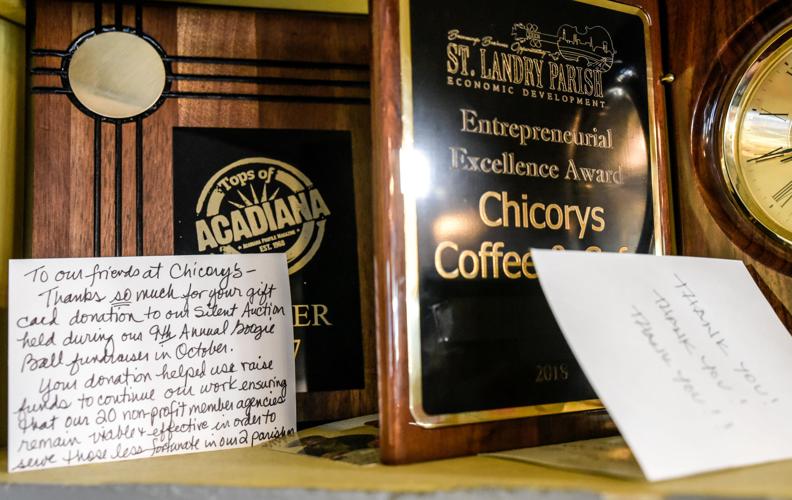 Tops of
ACADIANA
ACADIANA PROFILE MAGAZINE
EST. 1968
ER
7
To our friends at Chicory's -
Thanks so much for your gift
card donation to our Silent Auction
held during our 9th Annual Boogie
Ball fundraiser in October.
Your donation helped use raise
funds to continue our work ensuring
that our 20 non-profit member agencies
remain viable & effective in order to
serve those less fortunate in our 2 parish
ST. LANDRY PARISH
ECONOMIC DEVELOPMENT
Entrepreneurial
Excellence Award
Chicorys
Coffee & Caf
2018
THANK YOU!
THANK YOU!
THANK YOU!!